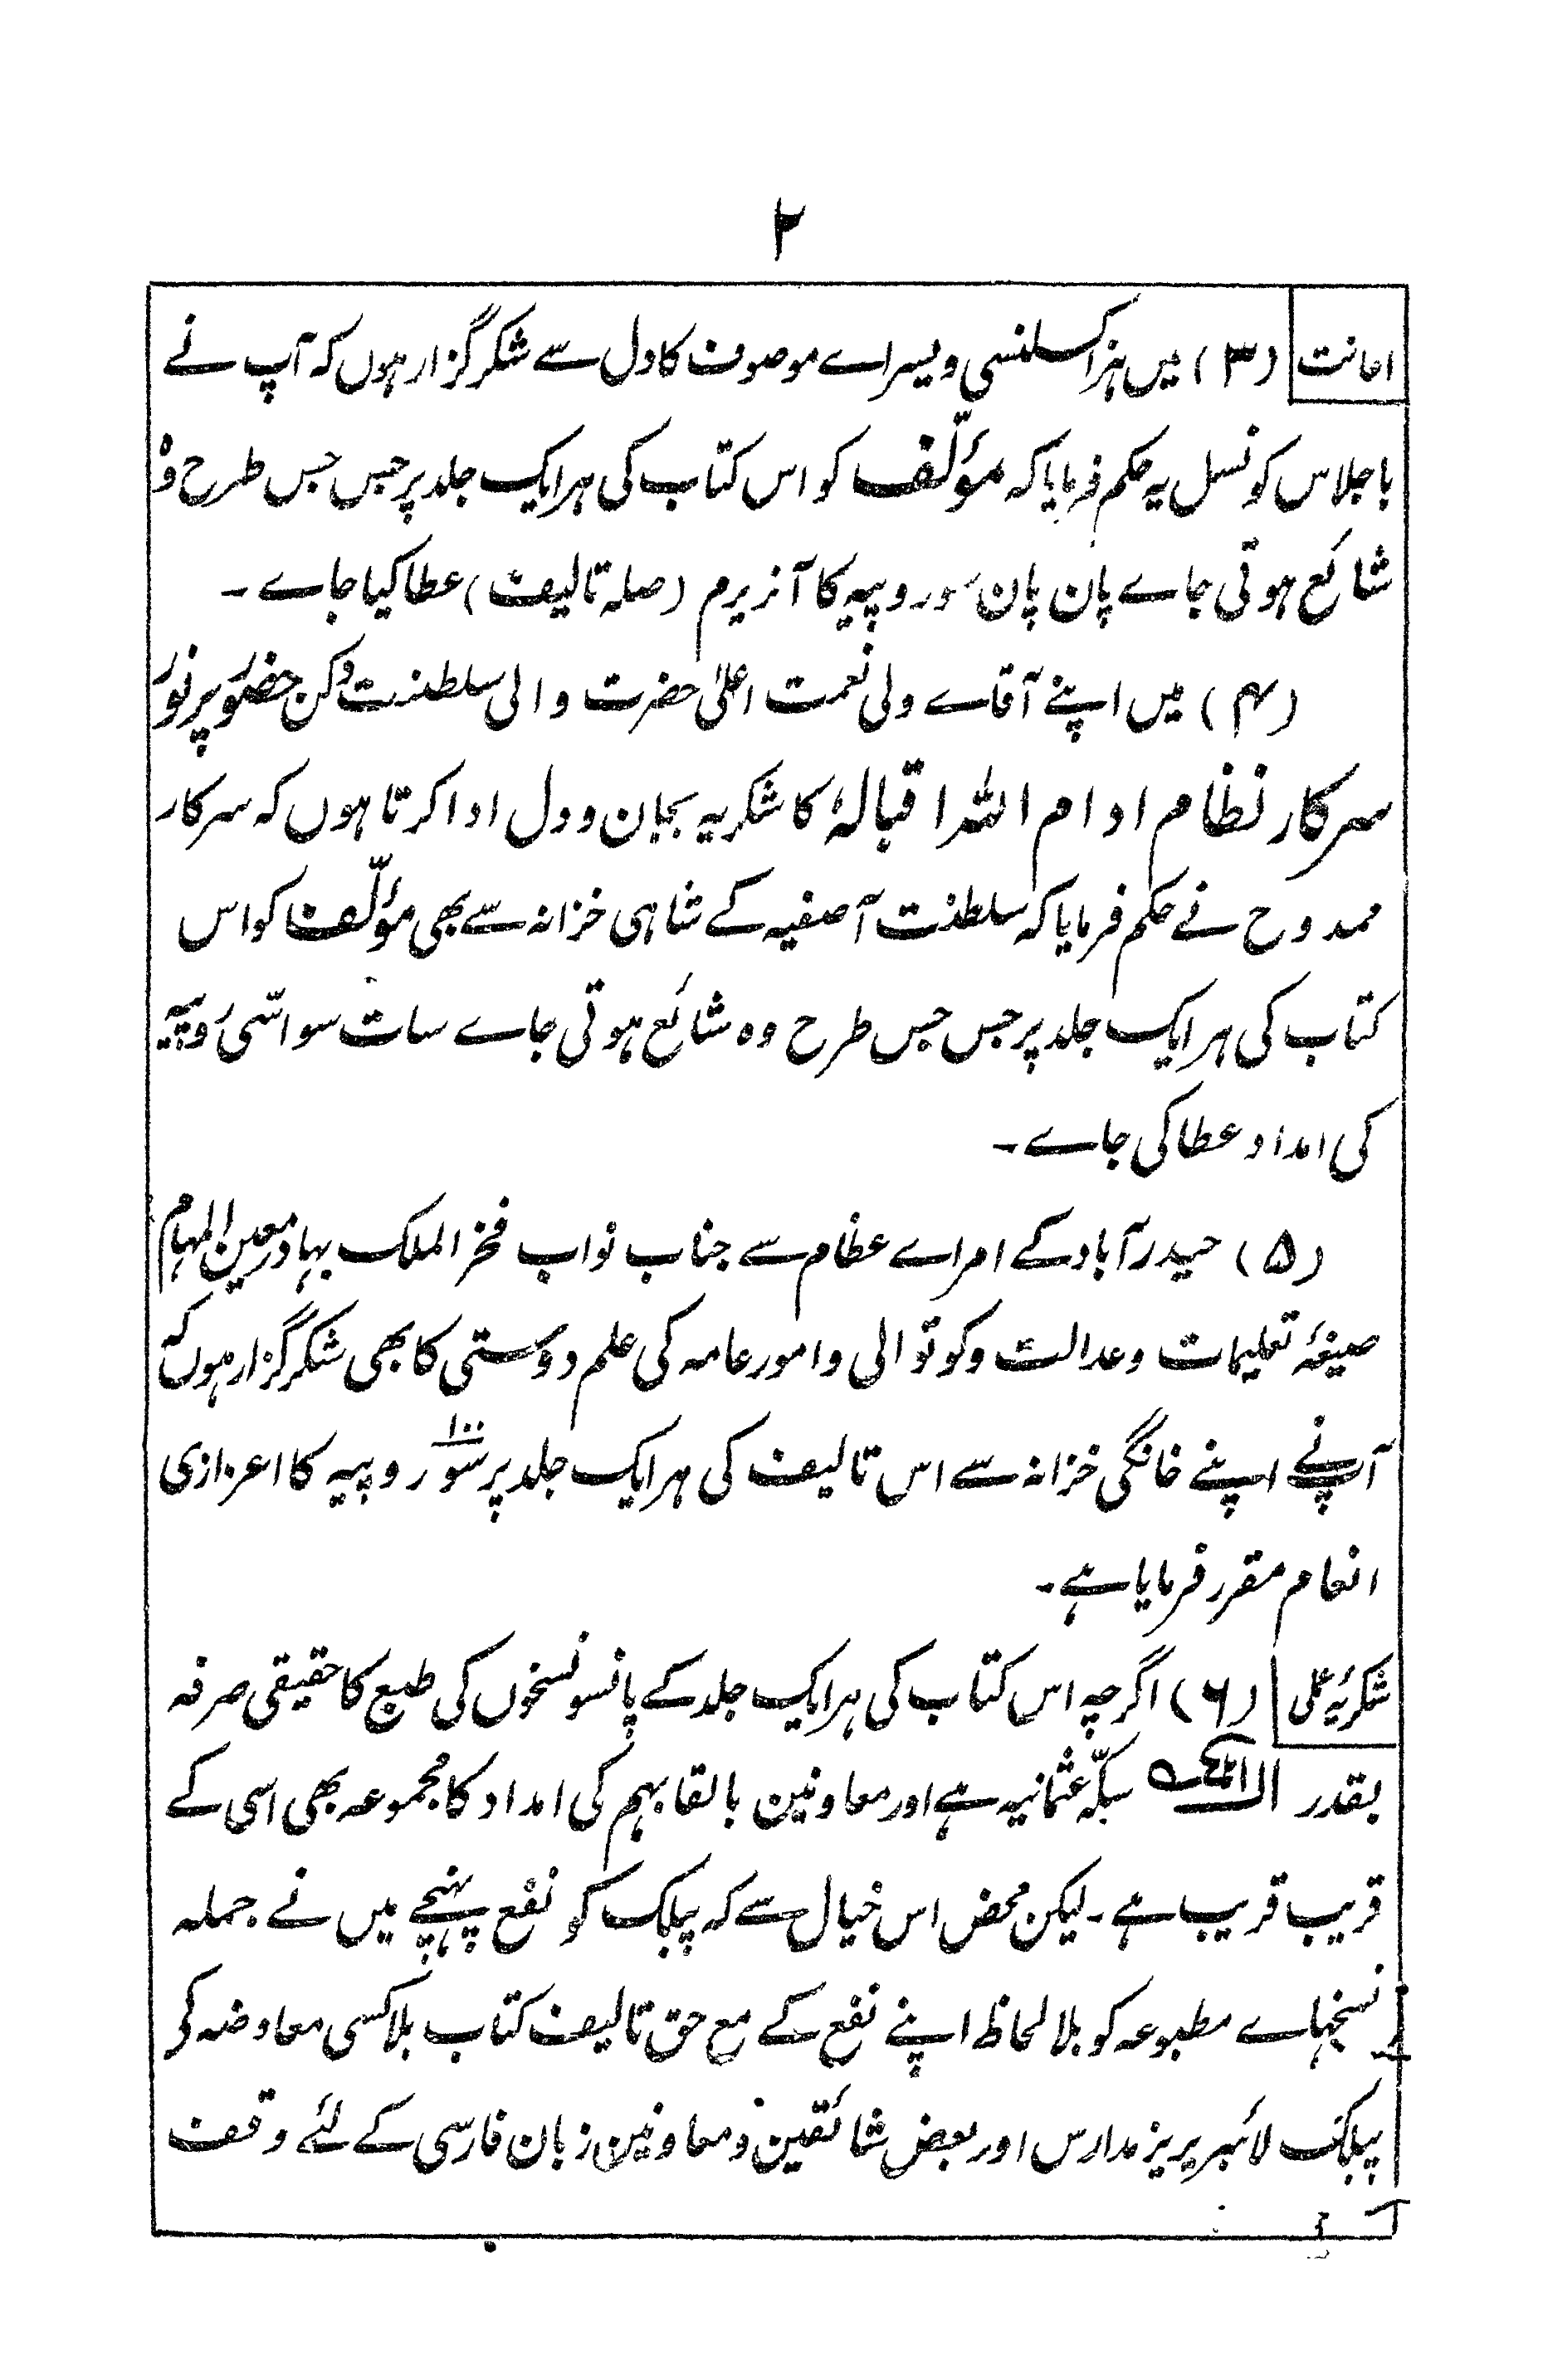 ۲
اعانت (۳) میں ہز اکسلنسی ویسراے موصوف کا دل سے شکر گزار ہوں کہ آپ نے
باجلاس کونسل یہ حکم فرمایا کہ مؤلّف کو اس کتاب کی ہر ایک جلد پر جس جس طرح وہ
شائع ہوتی جاے پان پان سور وپیہ کا آنریرم (صلہ تالیف) عطا کیا جاے ۔
(۴) میں اپنے آقاے ولی نعمت اعلیٰ حضرت والی سلطنت دکن حضور پر نور
سرکار نظام ادام اللہ اقبالہٗ کا شکریہ بجان و دل ادا کرتا ہوں کہ سرکار
ممدوح نے حکم فرمایا کہ سلطنت آصفیہ کے شاہی خزانہ سے بھی مؤلّف کو اس
کتاب کی ہر ایک جلد پر جس جس طرح وہ شائع ہوتی جاے سات سو اسّی روپیہ
کی امداد عطا کی جاے ۔
(۵) حیدرآباد کے امراے عظام سے جناب نواب فخر الملک بہادر معین المہام
صیغۂ تعلیمات و عدالت و کوتوالی و امور عامہ کی علم دوستی کا بھی شکر گزار ہوں کہ
آپ نے اپنے خانگی خزانہ سے اس تالیف کی ہر ایک جلد پر سو ۱۰۰ روپیہ کا اعزازی
انعام مقرر فرمایا ہے ۔
شکریۂ عملی (۶) اگرچہ اس کتاب کی ہر ایک جلد کے پانسو نسخوں کی طبع کا حقیقی صرفہ
بقدر سکّہ عثمانیہ ہے اور معاونین بالقابہم کی امداد کا مجموعہ بھی اسی کے
قریب قریب ہے ۔ لیکن محض اس خیال سے کہ پبلک کو نفع پہنچے میں نے جملہ
نسخہاے مطبوعہ کو بلا لحاظ اپنے نفع کے مع حق تالیف کتاب بلا کسی معاوضہ کی
پبلک لائبریریز مدارس اور بعض شائقین و معاونین زبان فارسی کے لئے وقف